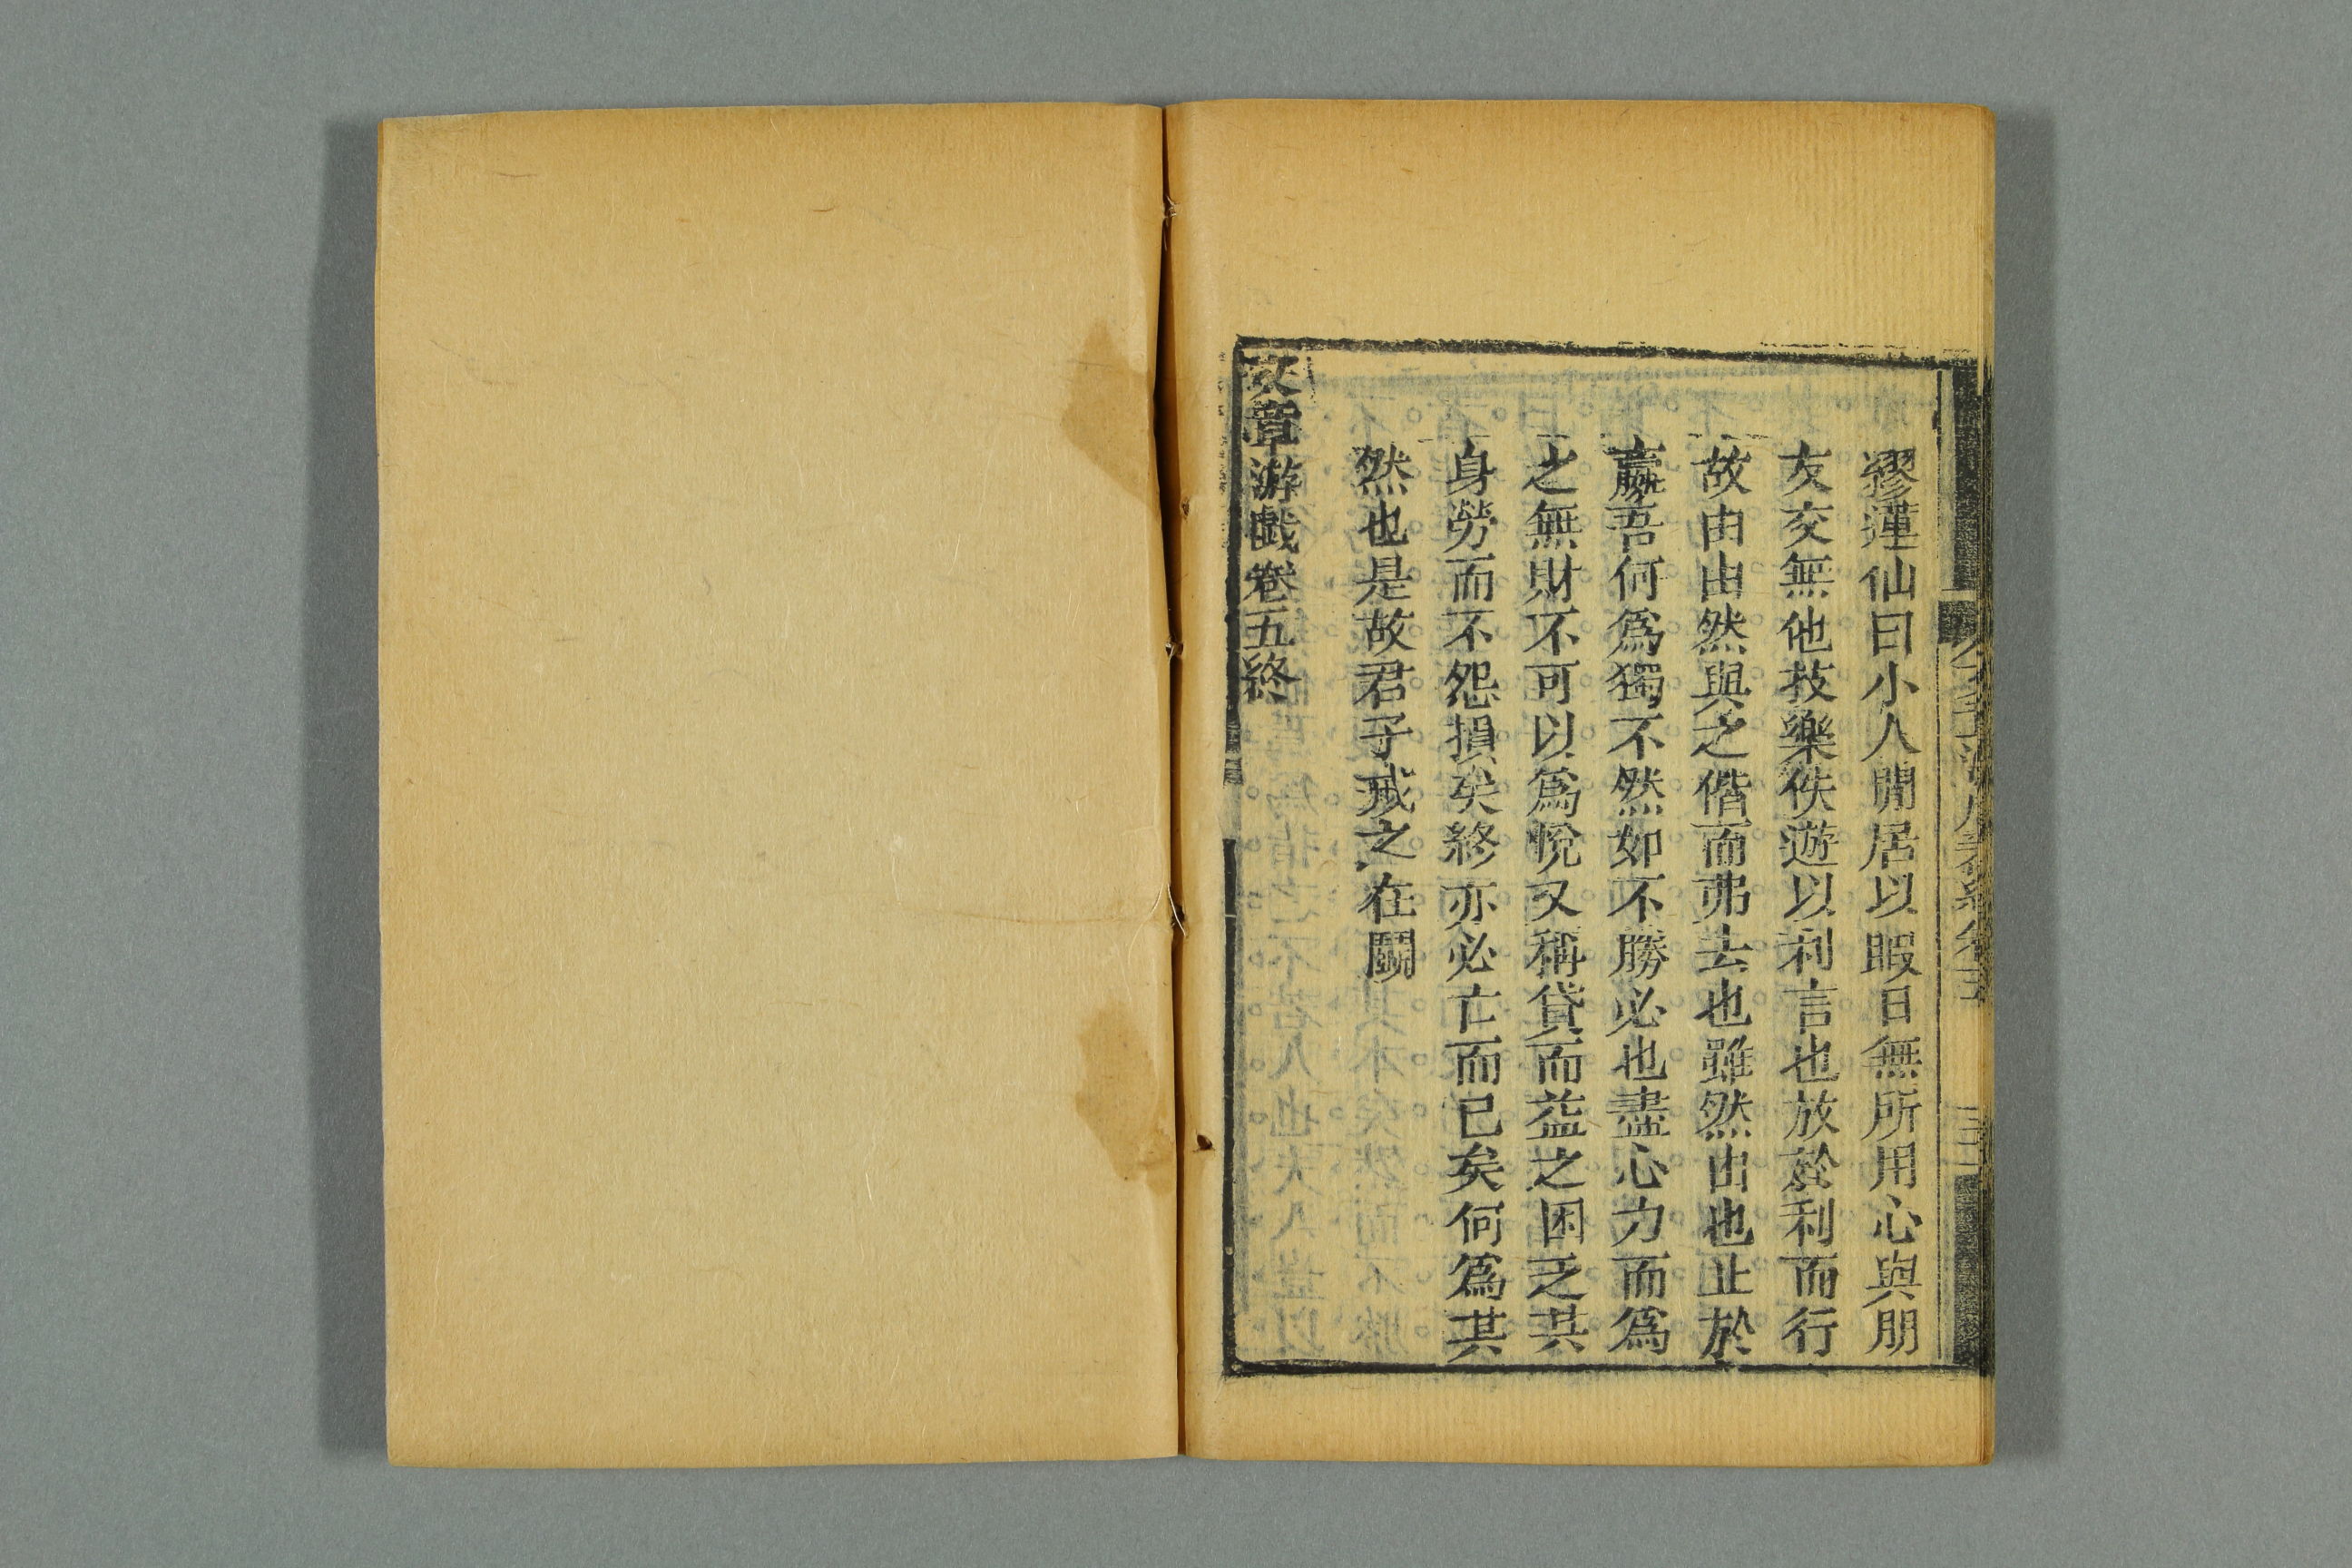 繆蓮仙曰小人閒居以暇日無所用心與朋
友交無他技樂佚遊以利言也放於利而行
故由由然與之偕而弗去也雖然由也止於
嬴吾何爲獨不然如不勝必也盡心力而爲
之無財不可以爲悅又稱貸而益之困乏其
身勞而不怨損矣終亦必亡而已矣何爲其
然也是故君子戒之在鬭
文章游戲卷五終